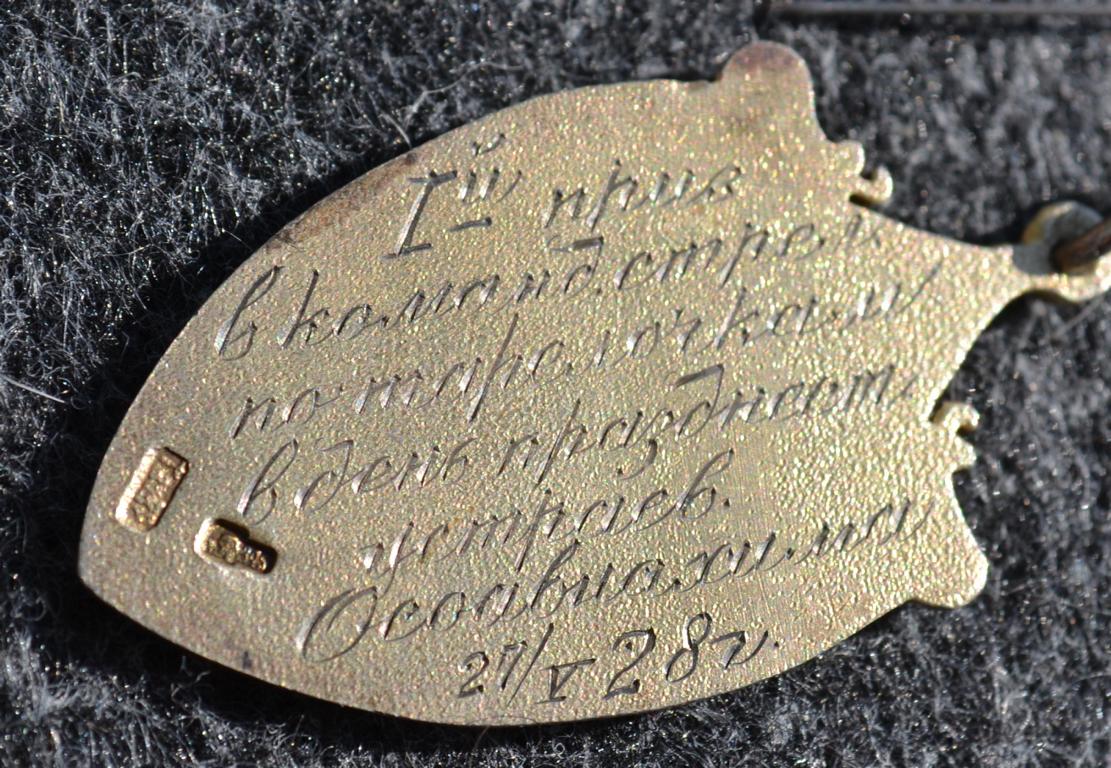 Iй приз
в команд. стрел.
по тарелочкам
в день празднест.
устраев.
Осоавиахима
27/V 28 г.